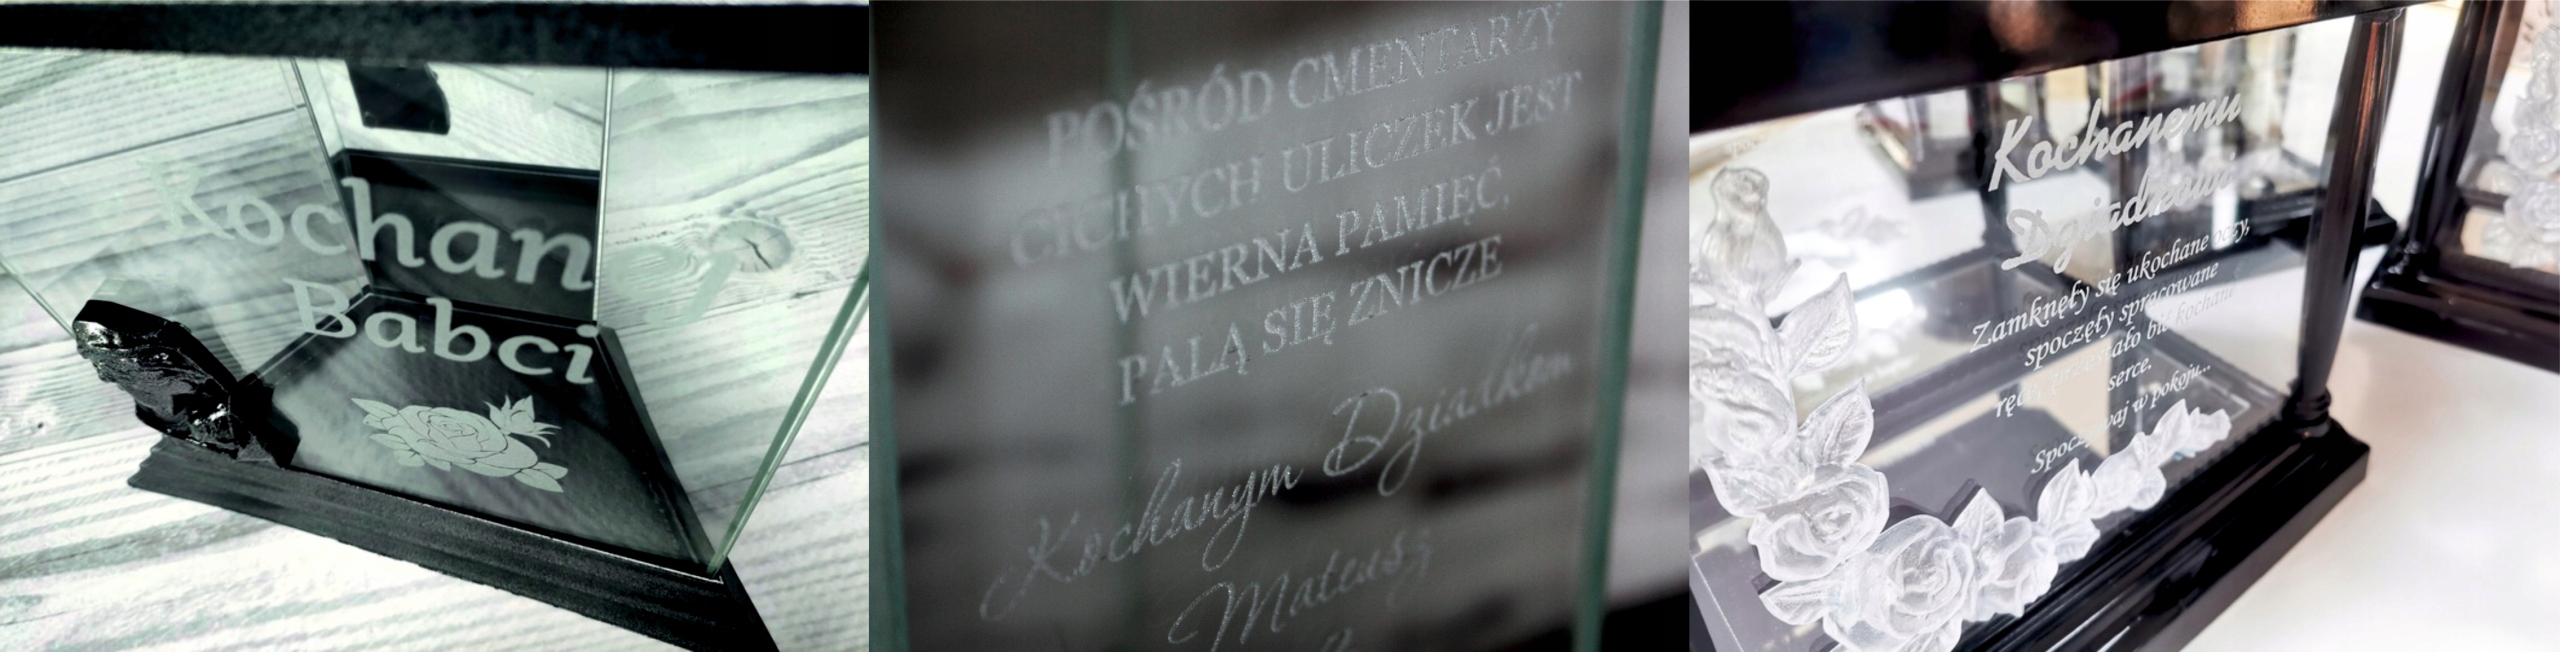 Kochanej
Babci
POŚRÓD CMENTARZY
CICHYCH ULICZEK JEST
WIERNA PAMIĘĆ,
PALĄ SIĘ ZNICZE
Kochanym Dziadkom
Mateusz
Kochanemu
Dziadkowi
Zamknęły się ukochane oczy,
spoczęły spracowane
bić kochane
serce.
w pokoju...